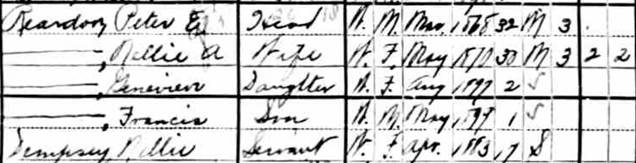 Reardon Peter E Head W. M. Mar. 1868 32 M 3
——, Nellie A Wife W. F. May 1870 30 M 3 2 2
——, Genevieve Daughter W. F. Aug 1897 2 S
——, Francis Son W. M. May 1899 1 S
Dempsey Nellie Servant W. F. Apr. 1883 17 S